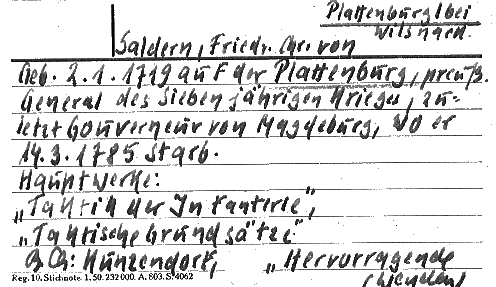 Plattenburg/bei
Wilsnack.
Saldern, Friedr. Chr. von
Geb. 2.1.1719 auf der Plattenburg, preuß.
General des Siebenjährigen Krieges, zu-
letzt Gouverneur von Magdeburg, wo er
14.3.1785 starb.
Hauptwerke:
„Taktik der Infanterie",
„Taktische Grundsätze"
Q.Ch: Kunzendorf, „Hervorragende
Reg. 10. Stichnote. 1. 50. 232000. A. 803. S. 4062